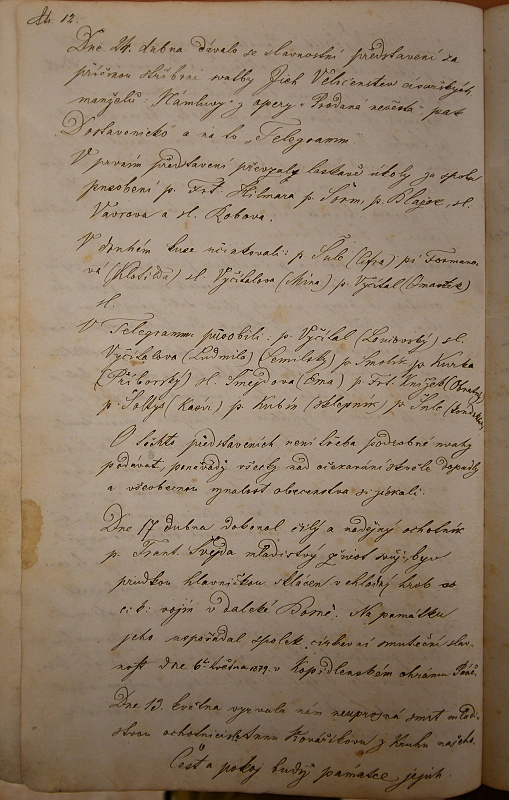 Str. 12.
Dne 24. dubna dávalo se slavnostní představení za
příčinou stříbrné svatby Jich Veličenstev císařských
manželů: Námluvy z opery "Prodaná nevěsta" pak
Dostaveníčko a na to "Telegramm".
V prvním představení převzaly laskavě úkoly za spolu
působení p. Frt. Hilmara p. Šorm, p. Blažek, sl.
Vávrova a sl. Kobova.
V druhém kuse účinkovali: p. Šulc (Cifra) pí Formano-
va (Klotilda) sl. Vyčítalova (Mína) p. Vyčítal
sl.
V Telegrammu působili: p. Vyčítal sl.
Vyčítalova (Ludmila) p. Smolík p. Kurka
(Příborský) sl. Šmejdova (Ema) p. Frt. Knížek
p. Šoltys (Kašpr) p. Kubín (sklepník) p. Šulc
O těchto představeních není třeba podrobné úvahy
podávat, poněvadž všecky nad očekávání skvěle dopadly
a všeobecnou obecenstva si získali.
Dne 17 dubna dokonal čilý a nadějný ochotník
p. Frant. Švejda mladistvý život svůj byv
prudkou hlavničkou sklácen v chladný hrob co
c. k. vojín v daleké Bosně. Na památku
jeho uspořádal spolek církevní smuteční slav-
nosť dne 6ho května 1879 v Kopidlenském chrámu Páně.
Dne 13. května vyrvala nám neúprosná smrt mladi-
stvou ochotnici Annu Kovaříkovu z kruhu našeho.
Čest a pokoj budiž památce jejich.